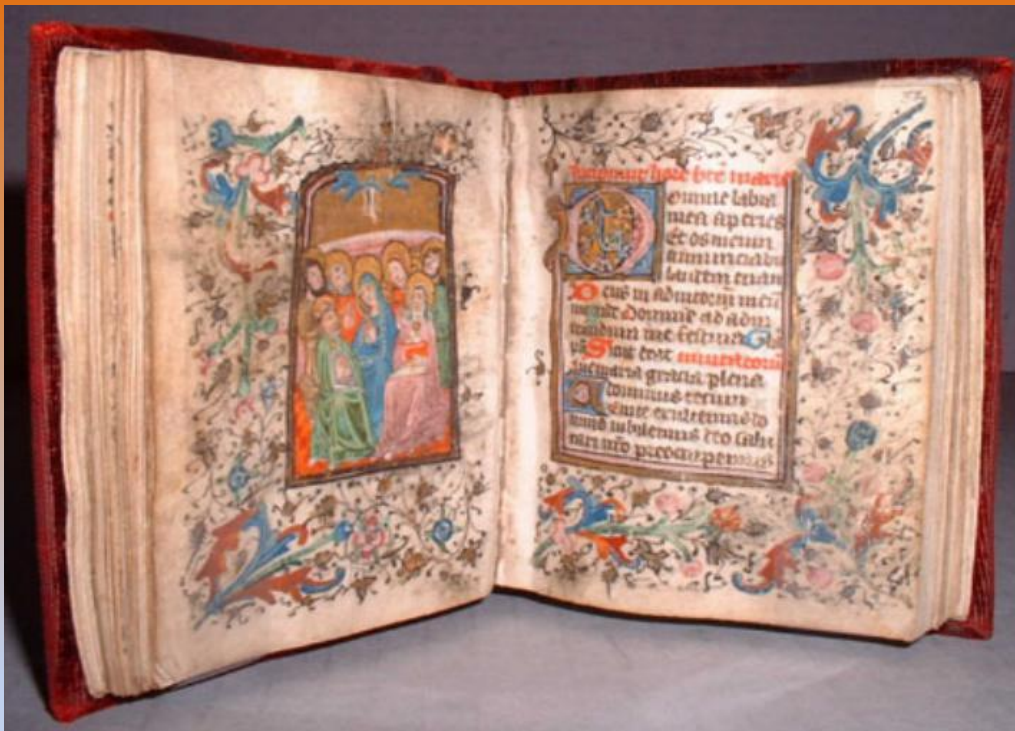 hore bte marie
Domine labia
mea aperies
Et os meum
annunciabit
laudem tuam
Deus in adiutorium meū
Domine ad adiu
vandum me festina Glīa
Sicut erat
Ave maria gracia plena
dominus tecum
Venite exultemus do
mino iubilemus deo salu
preoccupemus